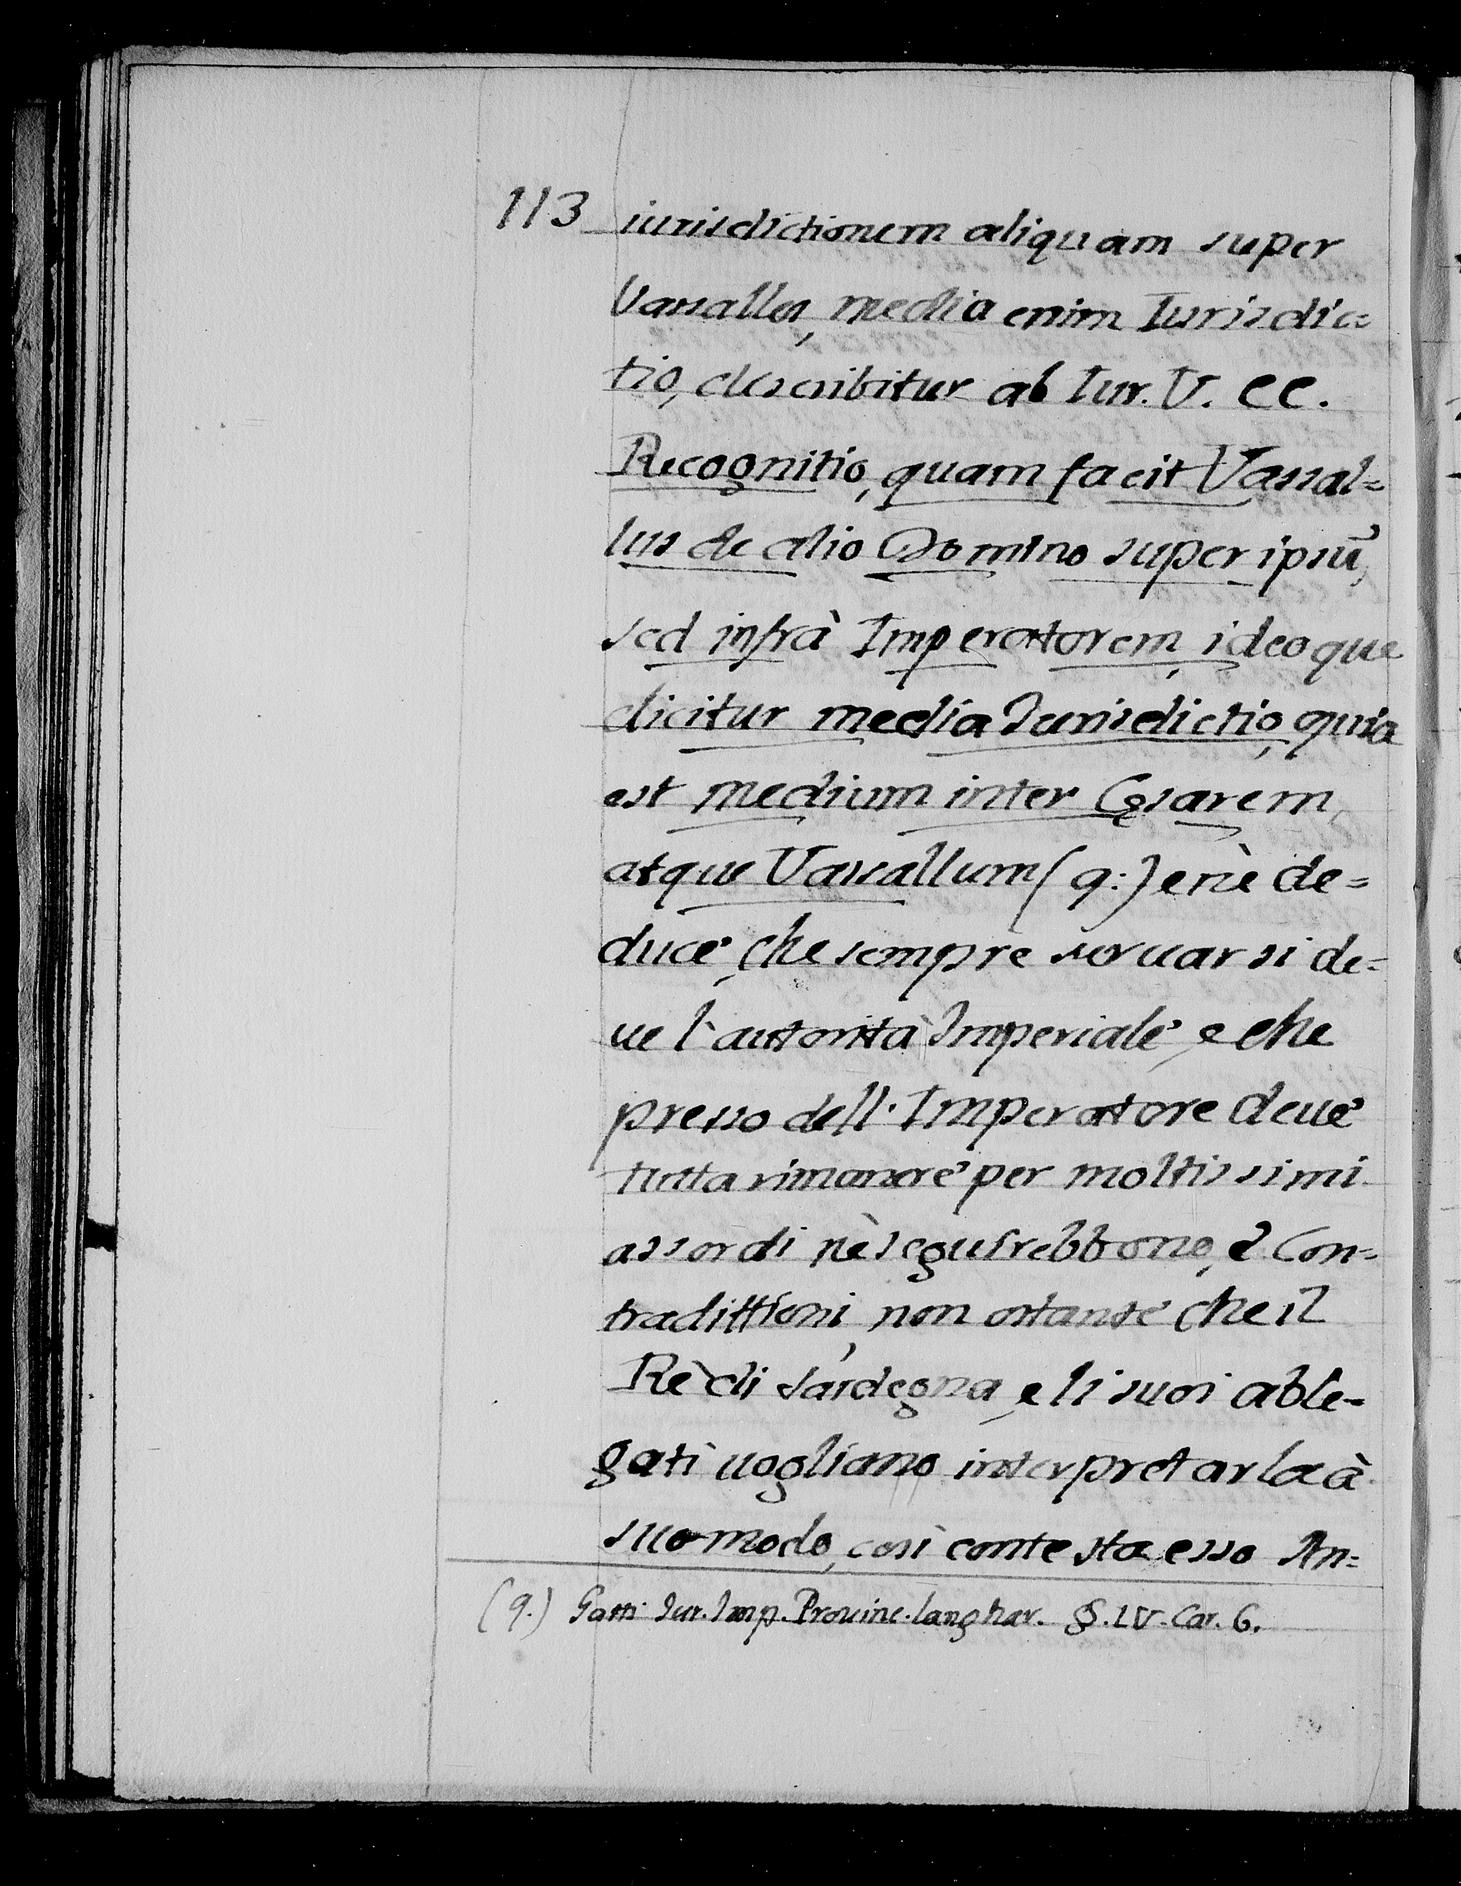 113 iurisdictionem aliquam super
Vassallos, media enim Iurisdic=
tio, describitur ab Iur. V. CC.
Recognitio, quam facit Vassal=
lus de alio Domino super ipsũ,
sed infrà Imperatorem, ideoque
dicitur media Iurisdictio, quia
est medium inter Cęsarem,
atque Vassallum (q:) e nè de=
duce, che sempre seruar si de=
ue l'autorità Imperiale, e che
presso dell'Imperatore deue
tutta rimanere per moltissimi
assordi nè seguirebbono, è con=
tradittioni, non ostante che il
Rè di Sardegna, e li suoi able=
gati uogliano interpretarla à
suo modo, così contesta esso An=
(q.) Gatti Iur. Imp. Prouinc. langhar. §. LV. Car. 6.